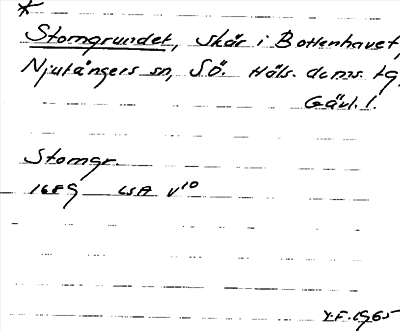 *
Storngrundet, skär i Bottenhavet,
Njutångers sn, SÖ. Häls. doms. tg,
Gävl. l.
Storngr.
1689 LSA V10
Y.F. 1965